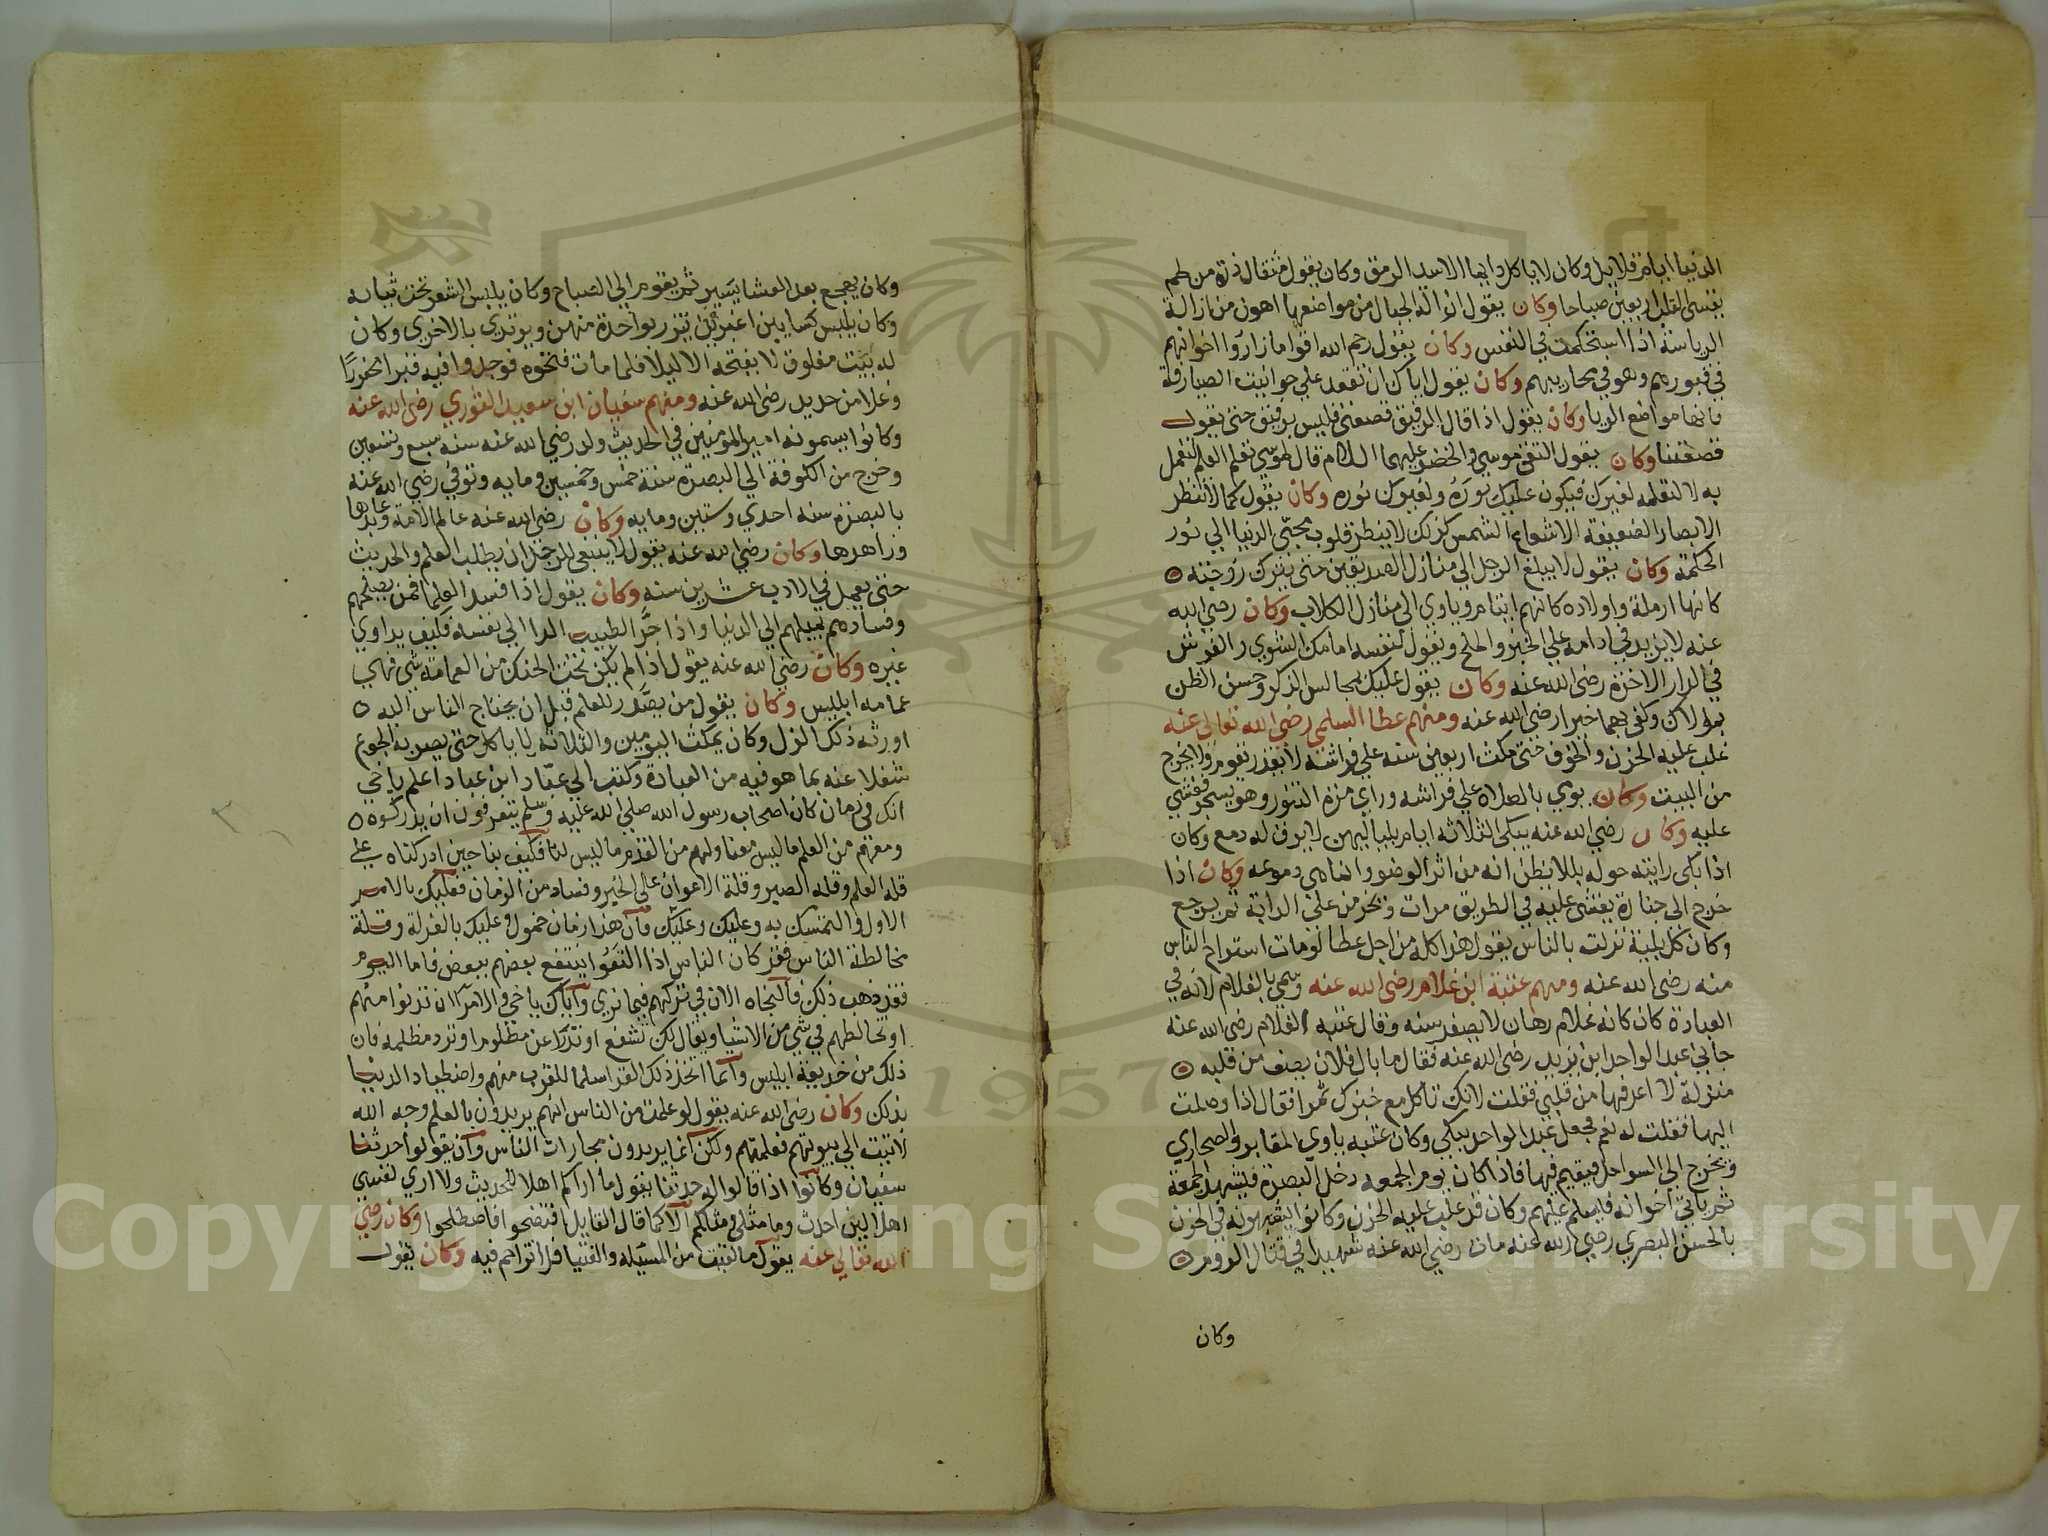 الدنيا ايام قلايل وكان لا ياكل دايما الا سد الرمق وكان يقول مثقال ذرة من لحم
يقسي القلب اربعين صباحا وكان يقول ازالة الجبال من مواضعها اهون من ازالة
الرياسة اذا استحكمت في النفس وكان يقول رحم الله اقواما زاروا اخوانهم
في قبورهم وهو في محاريبهم وكان يقول اياك ان تقعد علي حوانيت الصيارفة
فانها مواضع الربا وكان يقول اذا قال الرفيق قصعتي فليس برفيق حتي يقول
قصعتنا وكان يقول التقي موسي والخضر عليهما السلام فقال لموسي تعلم العلم لتعمل
به لا لتعلمه لغيرك فيكون عليك بوره ولغيرك نوره وكان يقول كما لا تنظر
الابصار الضعيفة الا شعاع الشمس كذلك لا ينظر قلوب محبي الدنيا الي نور
الحكمة وكان يقول لا يبلغ الرجل الي منازل الصديقين حتي يترك زوجته
كانها ارملة واولاده كانهم ايتام وياوي الي منازل الكلاب وكان رضي الله
عنه لا يزيد في ادامه علي الخبز والملح ويقول لنفسه امامك الشوي والفرش
في الدار الاخرة رضي الله عنه وكان يقول عليك بمجالس الذكر وحسن الظن
بمولاك وكفي بهما خيرا رضي الله عنه ومنهم عطا السلمي رضي الله تعالي عنه
غلب عليه الحزن والخوف حتي مكث اربعين سنه علي فراشه لا يقدر يقوم ولا يخرج
من البيت وكان يومي بالصلاه علي فراشه وراي مرة التنور وهو يسجر فغشي
عليه وكان رضي الله عنه يبكي الثلاثه ايام بلياليهن لا يرقي له دمع وكان
اذا بكي رايته حوله بللا نظن انه من اثر الوضو وانما هي دموعه وكان اذا
خرج الي جنازة يغشي عليه في الطريق مرات ويخر من علي الدابة ثم يرجع
وكان كل بلية نزلت بالناس يقول هذا كله من اجل عطا لو مات استراح الناس
منه رضي الله عنه ومنهم عتبة ابن غلام رضي الله عنه وسمي بالغلام لانه في
العبادة كان كانه غلام رهان لا يصغر سنه وقال عتبه الغلام رضي الله عنه
جاني عبد الواحد ابن يزيد رضي الله عنه فقال ما بال فلان يصف من قلبه
منزلة لا اعرفها من قلبي فقلت لانك تاكل مع خبزك تمرا فقال اذا وصلت
اليها فقلت له نعم فجعل عبد الواحد يبكي وكان عتبه ياوي المقابر والصحاري
ويخرج الي السواحل فيقيم فيها فاذا كان يوم الجمعه دخل البصرة فيشهد الجمعة
ثم ياتي اخوانه فيسلم عليهم وكان قد غلب عليه الحزن وكانوا يشبهونه في الحزن
بالحسن البصري رضي الله عنه مات رضي الله عنه شهيدا في قتال الروم
وكان
وكان يهجع بعد العشا يسير ثم يقوم الي الصباح وكان يلبس الشعر تحت ثيابه
وكان يلبس كسايين اغبرين يتزر بواحدة منهن ويرتدي بالاخري وكان
له بيت مغلوق لا يفتحه الا ليلا فلما مات فتحوه فوجدوا فيه قبرا محفورا
وغلا من حديد رضي الله عنه ومنهم سفيان ابن سعيد الثوري رضي الله عنه
وكانوا يسمونه امير المؤمنين في الحديث ولد رضي الله عنه سنه سبع وتسعين
وخرج من الكوفة الي البصرة سنة خمس وخمسين ومايه وتوفي رضي الله عنه
بالبصرة سنه احدي وستين ومايه وكان رضي الله عنه عالم الامة وعابدها
وزاهدها وكان رضي الله عنه يقول لا ينبغي للرجل ان يطلب العلم والحديث
حتي يعمل في الادب عشرين سنه وكان يقول اذا فسد العلما فمن يصلحهم
وفسادهم بميلهم الي الدنيا واذا جر الطبيب الدا الي نفسه فكيف يداوي
غيره وكان رضي الله عنه يقول اذا لم يكن تحت الحنك من العمامة شي فهي
عمامه ابليس وكان يقول من يصدر للعلم قبل ان يحتاج الناس اليه
اورثه ذلك الذل وكان يمكث اليومين والثلاثه لا ياكل حتي يضر به الجوع
شغلا عنه بما هو فيه من العبادة وكتب الي عباد ابن عباد اعلم ياخي
انك في زمان كان اصحاب رسول الله صلي الله عليه وسلم يتعوذون ان يدركوه
ومعهم من العلم ما ليس معنا ولهم من القدم ما ليس لنا فكيف بنا حين ادركناه علي
قله العلم وقله الصبر وقلة الاعوان علي الخير وفساد من الزمان فعليك بالامر
الاول والتمسك به وعليك وعليك فان هذا زمان خمول وعليك بالعزلة وقلة
مخالطة الناس فقد كان الناس اذا التقوا ينتفع بعضهم ببعض فاما اليوم
فقد ذهب ذلك فالنجاه الان في تركهم فيما نري واياك ياخي والامرا ان تدنوا منهم
او تخالطهم في شي من الاشيا ويقال لك تشفع او تدرا عن مظلوم او ترد مظلمه فان
ذلك من خديعة ابليس وانما اتخذ ذلك القرا سلما للقرب منهم واصطياد الدنيا
بذلك وكان رضي الله عنه يقول لو علمت من الناس انهم يريدون بالعلم وجه الله
لاتيت الي بيوتهم فعلمتهم ولكن انما يريدون مجارات الناس وان يقولوا حدثنا
سفيان وكانوا اذا قالوا له حدثنا يقول ما اراكم اهلا للحديث ولا اري نفسي
اهلا لان احدث وما مثلي ومثلكم الا كما قال القايل افتضحوا فاصطلحوا وكان رضي
الله تعالي عنه يقول ما لقيت من المسيله والفتيا فلا تزاحم فيه وكان يقول